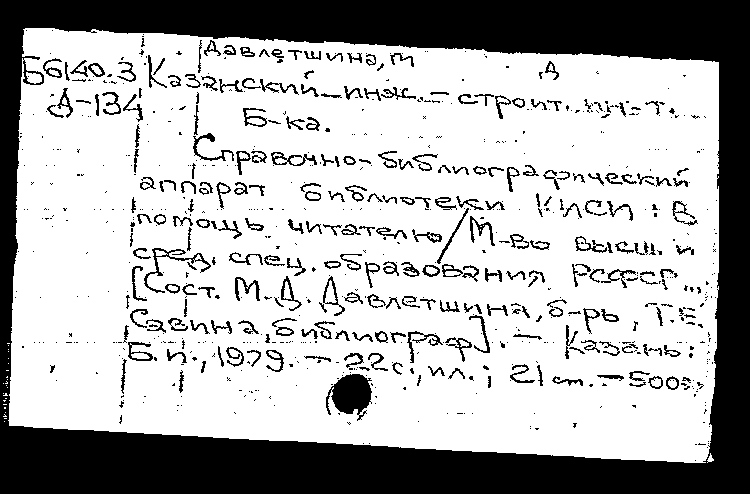 Давлетшина, м
Д
Б6140.3 Казанский инж. - строит. ин-т.
Д-134 Б-ка.
Справочно-библиографический
аппарат библиотеки КИСИ : В
помощь читателю / М-во высш. и
сред. спец. образования РСФСР ...
[Сост. М.Д. Давлетшина, б-рь, Т.Е.
Савина, библиограф]. - Казань:
Б.и., 1979. - 22 с., ил.; 21 см. - 500э.